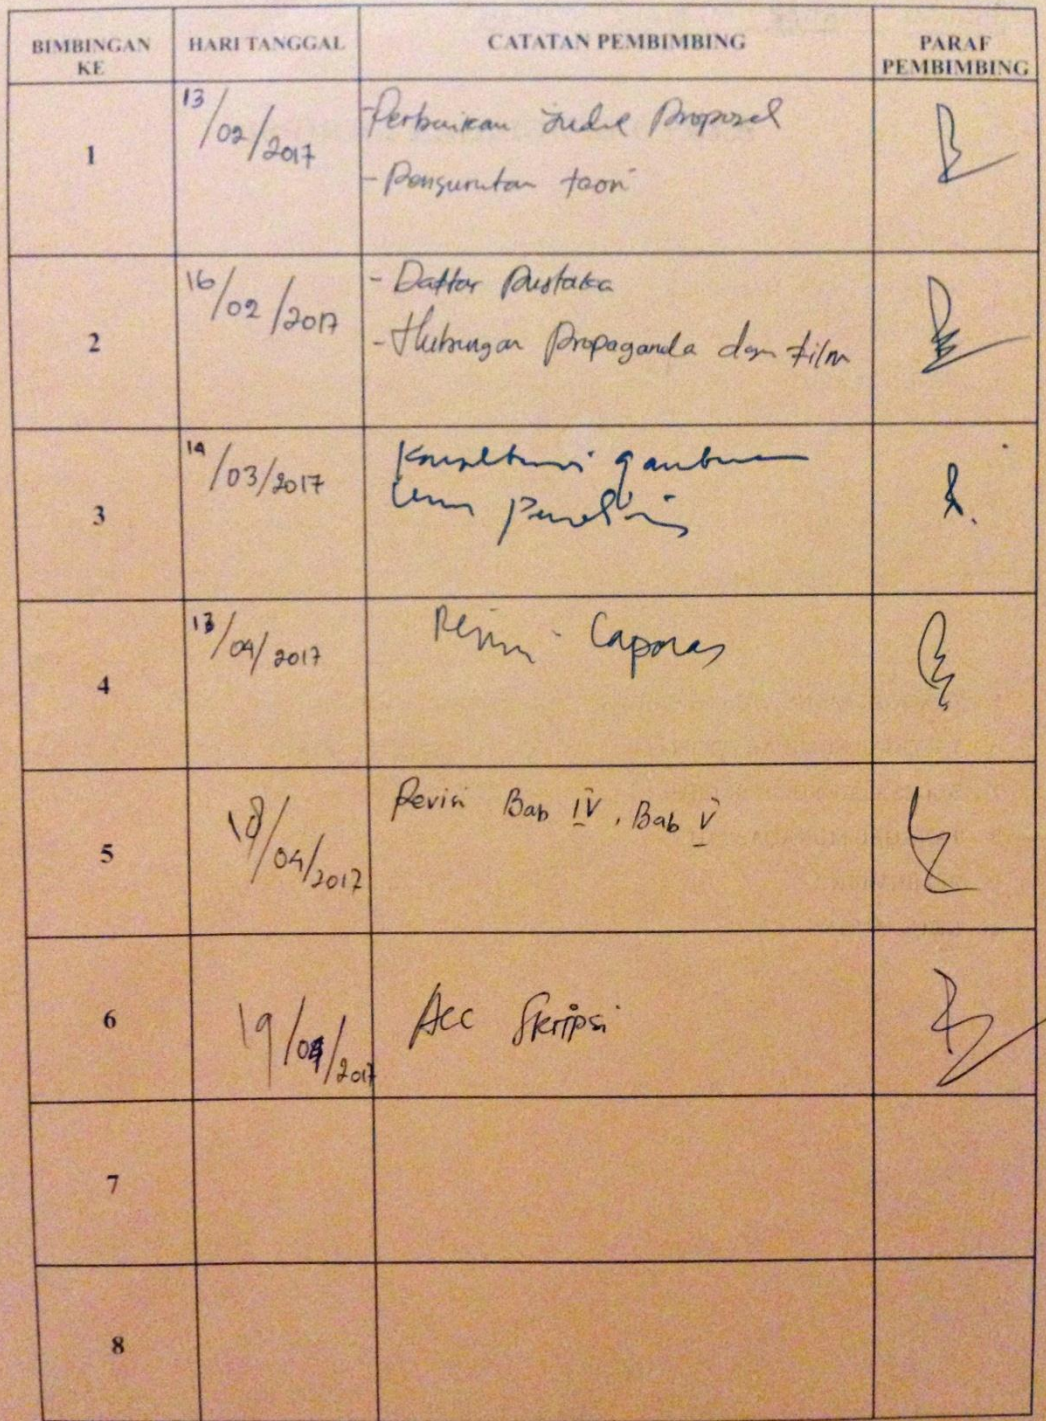 BIMBINGAN KE HARI TANGGAL CATATAN PEMBIMBING PARAF PEMBIMBING
1 13/02/2017 -Perbaikan Judul Proposal
- Pengurutan teori
2 16/02/2017 - Daftar Pustaka
- Hubungan Propaganda dgn Film
3 14/03/2017 Konsultasi gambaran
umum penelitian
4 13/04/2017
5 18/04/2017 Revisi Bab IV, Bab V
6 19/04/2017 Acc Skripsi
7
8